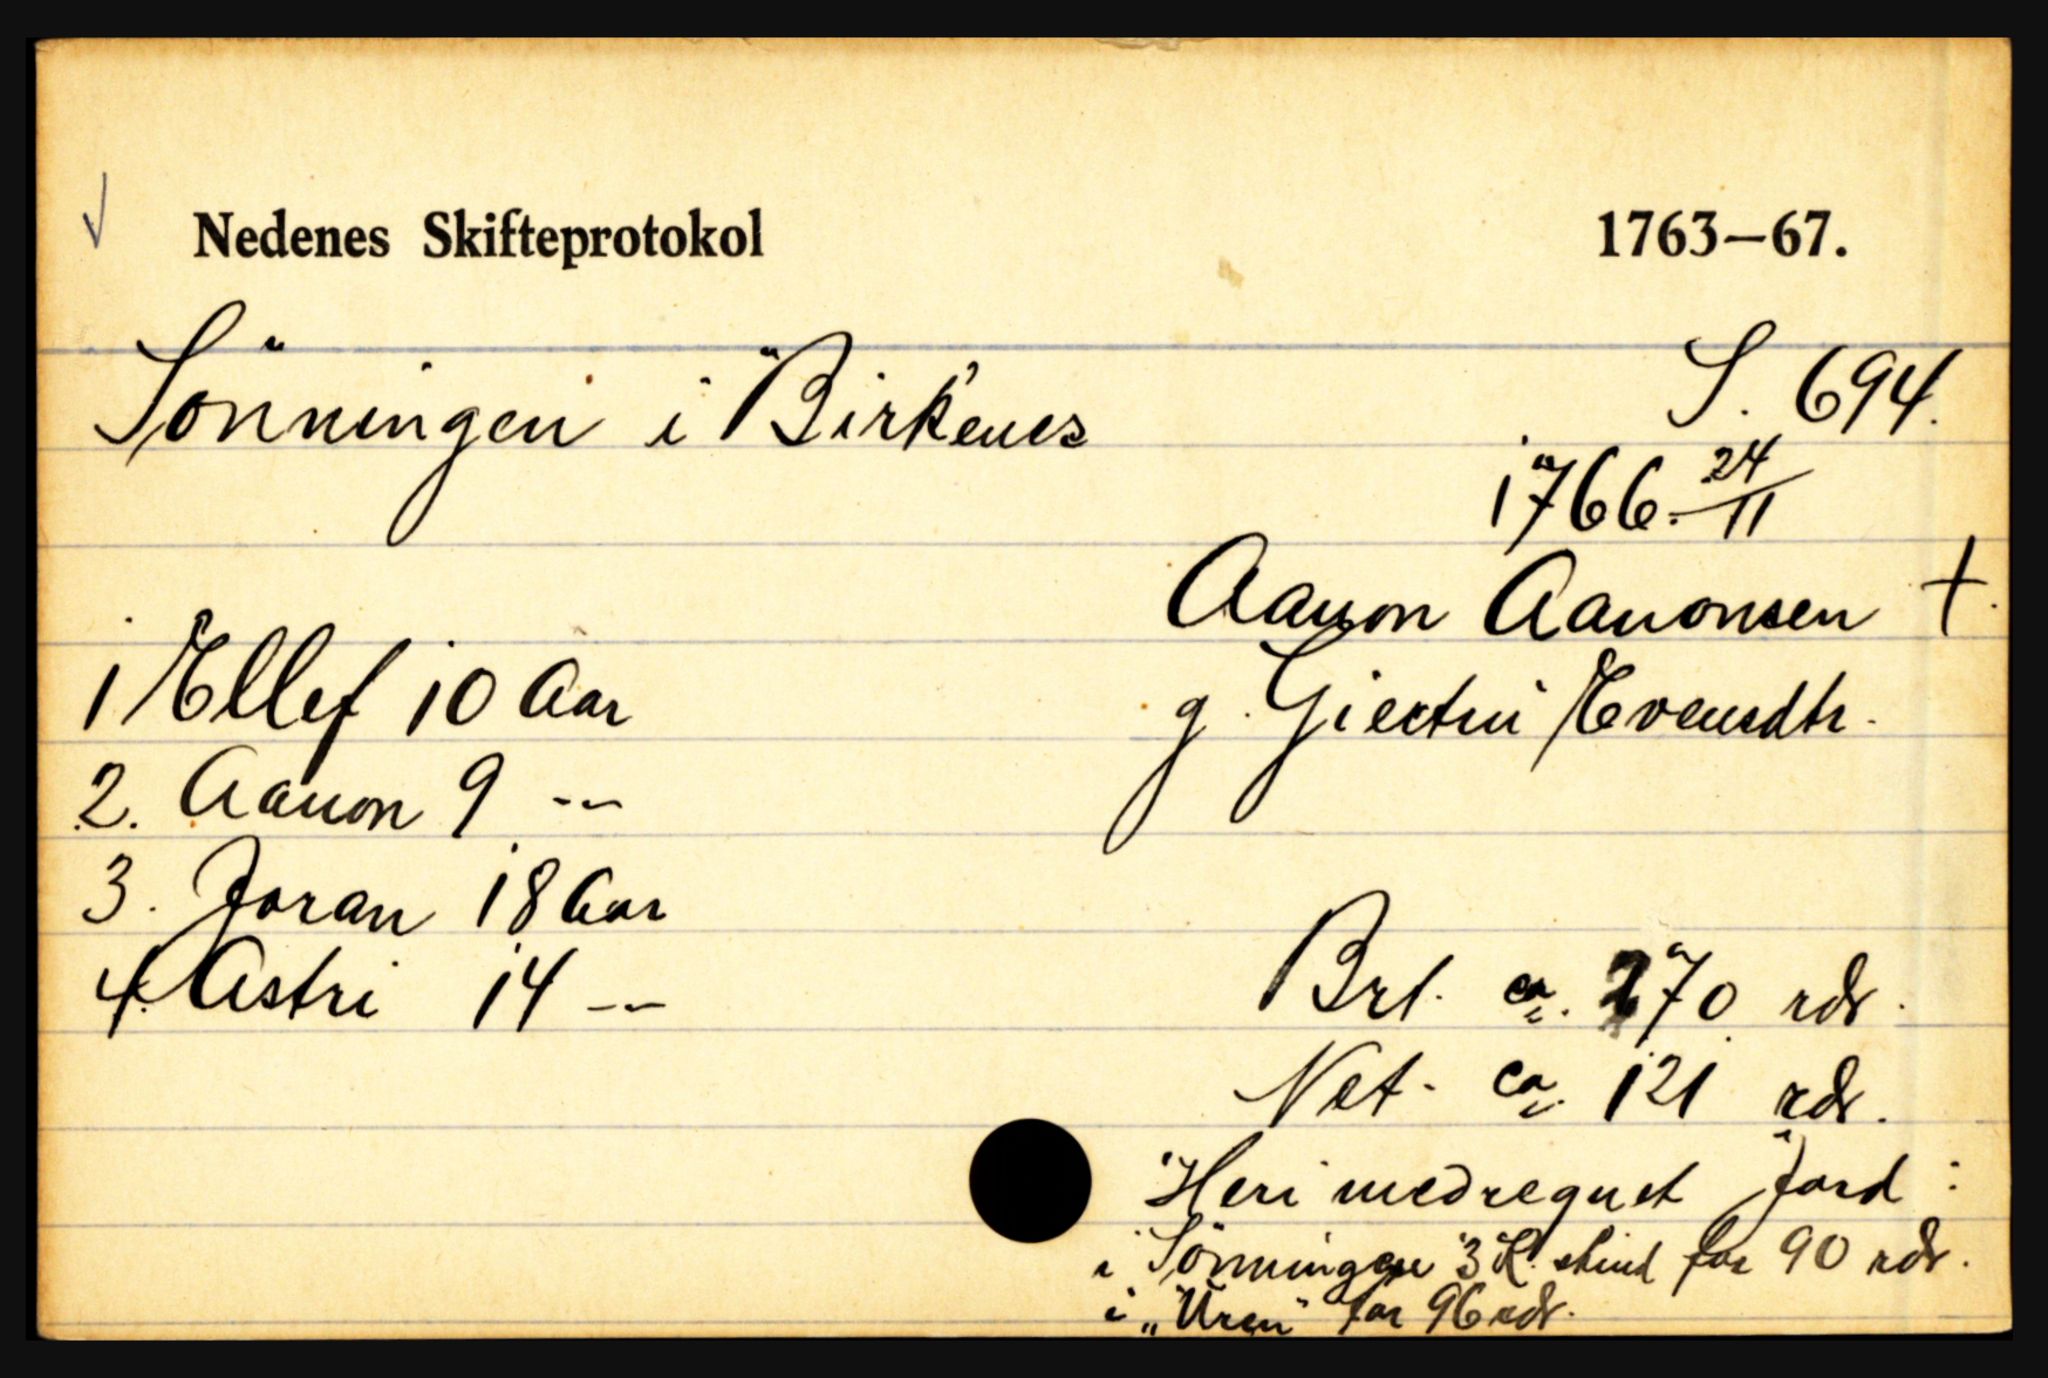 Nedenes Skifteprotokol 1763—67.
Sönningen i Birkenes S. 694.
1766. 24/11
Aanon Aanonsen +.
g. Giertru Evensdtr.
1 Ellef 10 Aar
2. Aanon 9 --
3. Joran 18 Aar
4. Astri 14 --
Brt. ca. 270 rdr.
Net. ca. 121 rdr.
Heri medregnet Jord:
i Sönningen 3 K. skind for 90 rdr.
i „Uren" for 96 rdr.